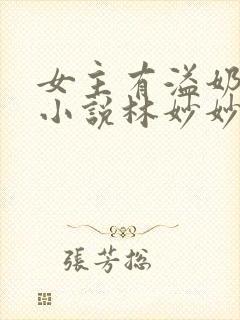 女主有溢奶
小說林妙妙
張芳総